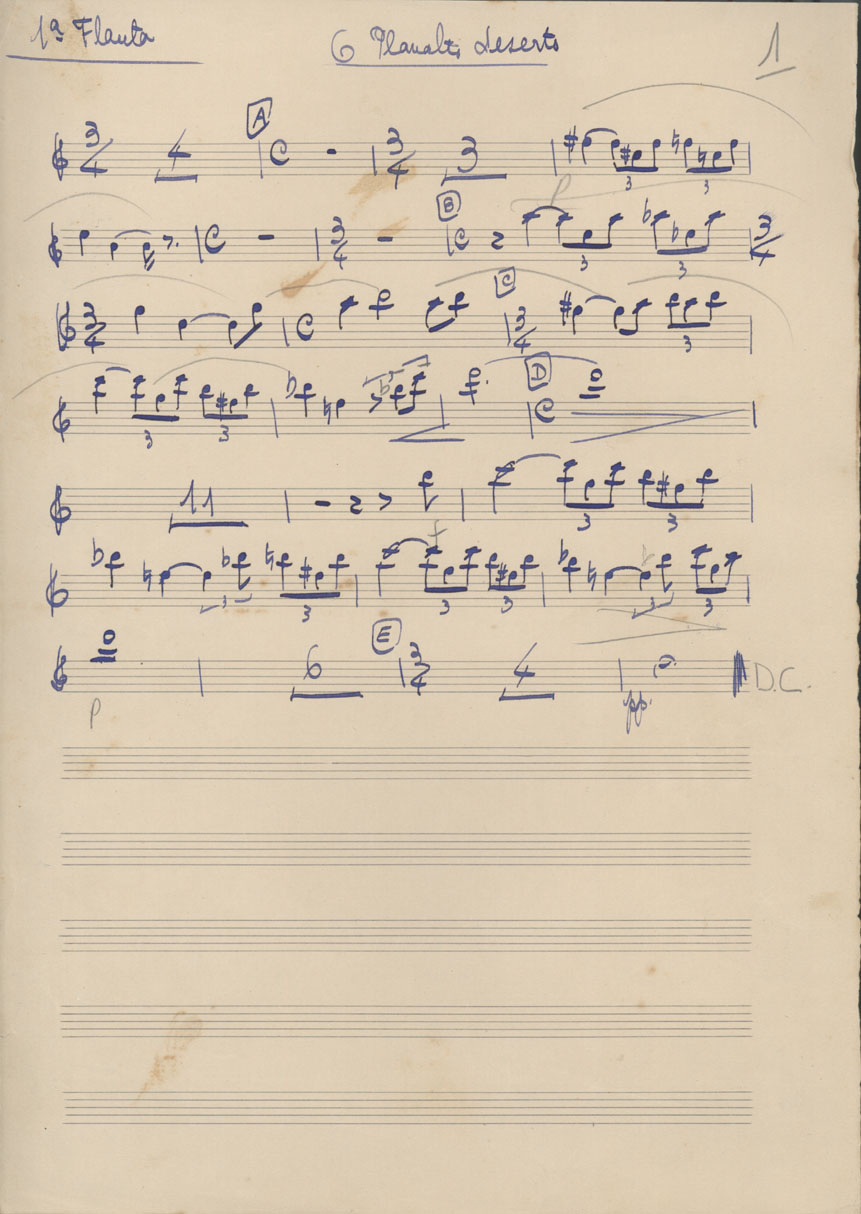 1ª Flauta
O Planalto deserto
1
3/4 4 A C 3/4 3
3 3
C 3/4 B C 3 3 3/4
3/4 C C 3/4 3
3 3 D C
11 3 3
3 3 3 3 3 3
6 E 3/4 4 D.C.
p pp.